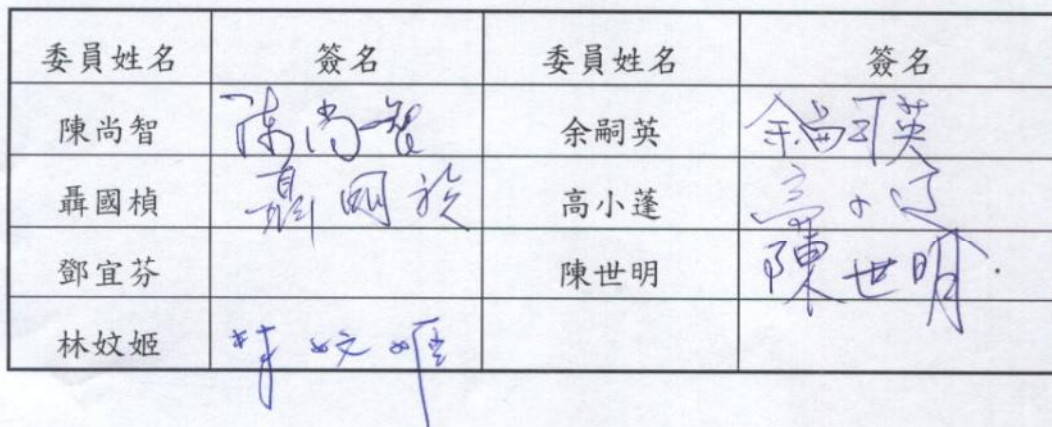 委員姓名 簽名 委員姓名 簽名
陳尚智 陳尚智 余嗣英 余嗣英
聶國楨 高小蓬
鄧宜芬 陳世明 陳世明
林妏姬 林妏姬